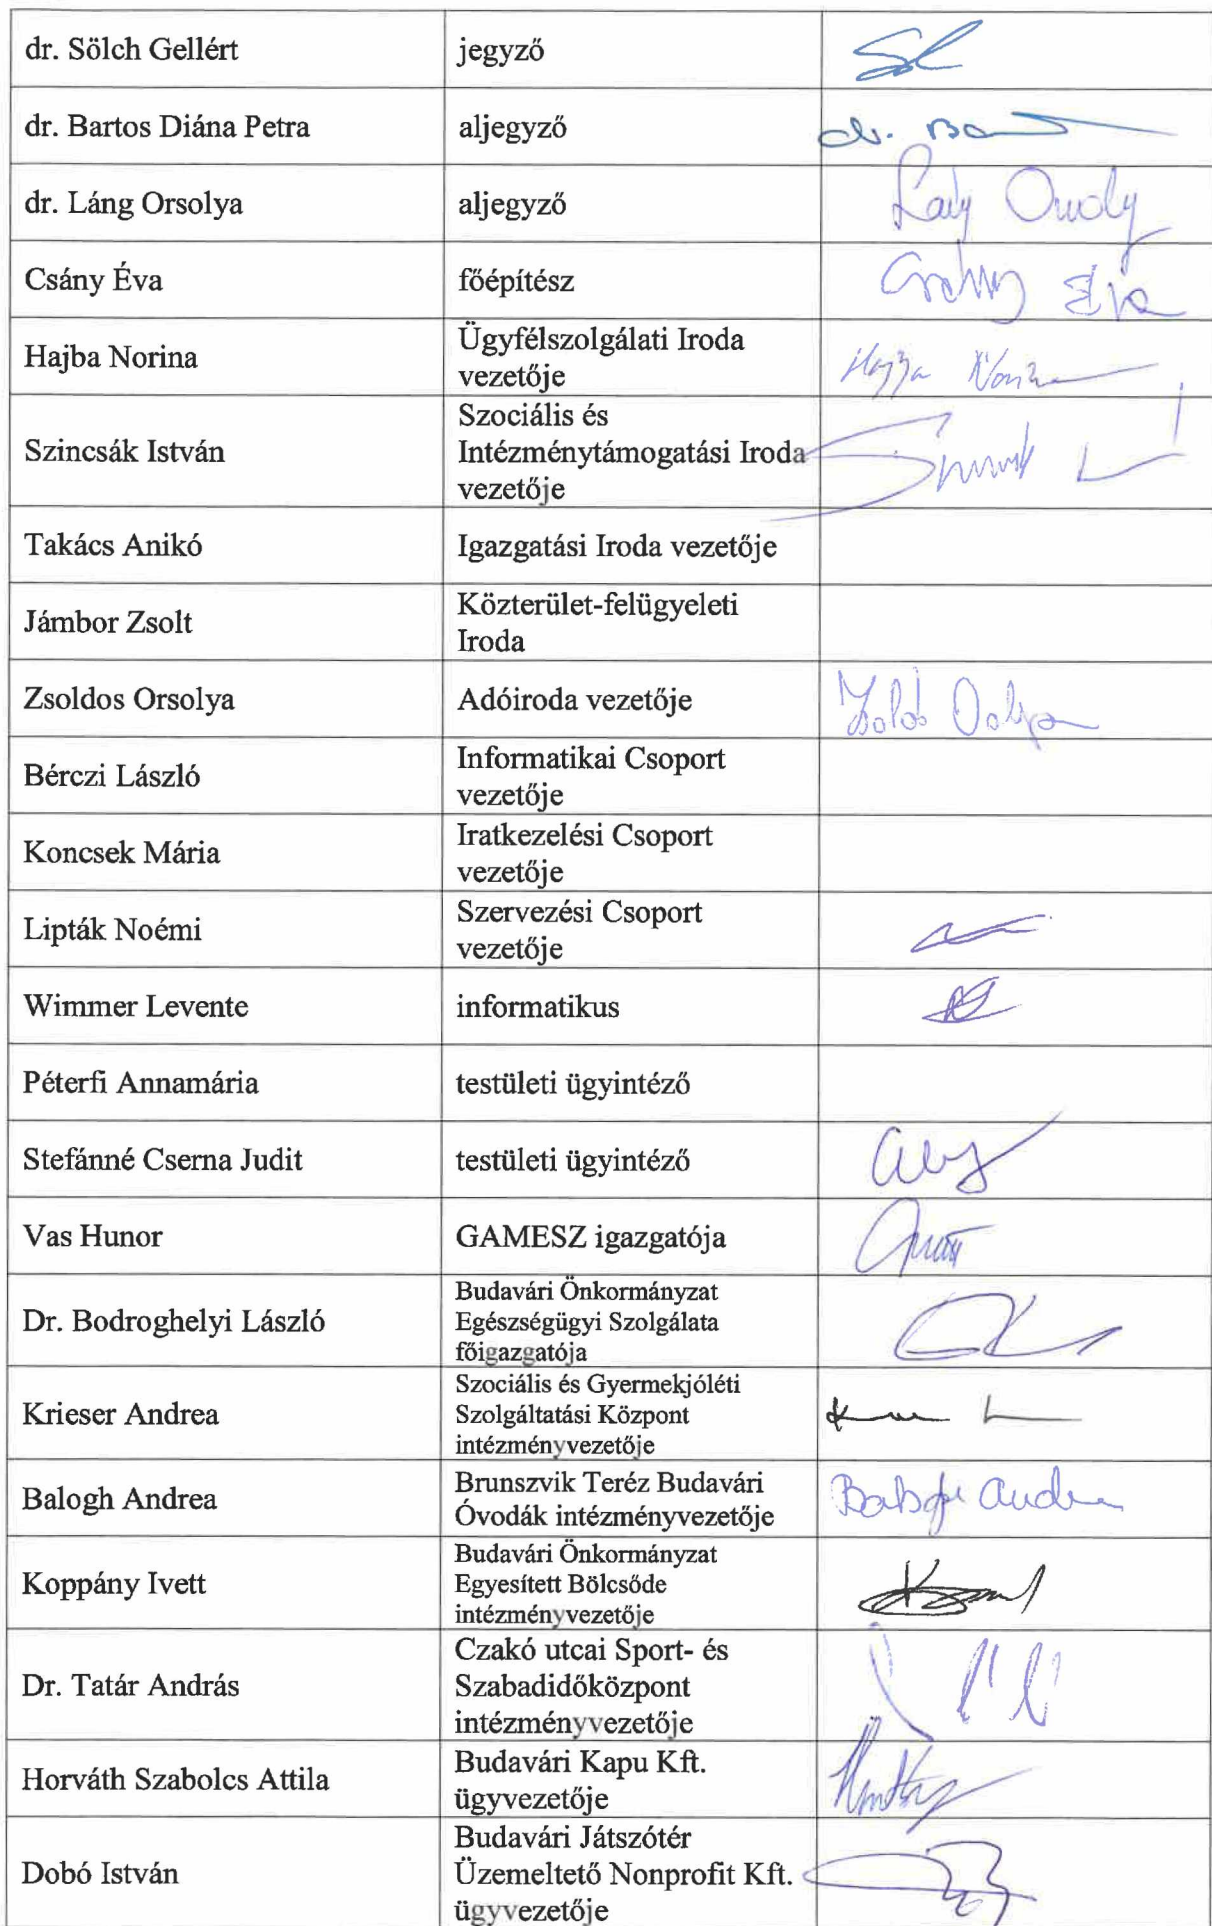 dr. Sölch Gellért
jegyző
dr. Bartos Diána Petra
aljegyző
dr. Ba
dr. Láng Orsolya
aljegyző
Csány Éva
főépítész
Csány Éva
Hajba Norina
Ügyfélszolgálati Iroda
vezetője
Hajba Norina
Szincsák István
Szociális és
Intézménytámogatási Iroda
vezetője
Takács Anikó
Igazgatási Iroda vezetője
Jámbor Zsolt
Közterület-felügyeleti
Iroda
Zsoldos Orsolya
Adóiroda vezetője
Bérczi László
Informatikai Csoport
vezetője
Koncsek Mária
Iratkezelési Csoport
vezetője
Lipták Noémi
Szervezési Csoport
vezetője
Wimmer Levente
informatikus
Péterfi Annamária
testületi ügyintéző
Stefánné Cserna Judit
testületi ügyintéző
Vas Hunor
GAMESZ igazgatója
Dr. Bodroghelyi László
Budavári Önkormányzat
Egészségügyi Szolgálata
főigazgatója
Krieser Andrea
Szociális és Gyermekjóléti
Szolgáltatási Központ
intézményvezetője
Balogh Andrea
Brunszvik Teréz Budavári
Óvodák intézményvezetője
Balogh Andrea
Koppány Ivett
Budavári Önkormányzat
Egyesített Bölcsőde
intézményvezetője
Dr. Tatár András
Czakó utcai Sport- és
Szabadidőközpont
intézményvezetője
Horváth Szabolcs Attila
Budavári Kapu Kft.
ügyvezetője
Dobó István
Budavári Játszótér
Üzemeltető Nonprofit Kft.
ügyvezetője